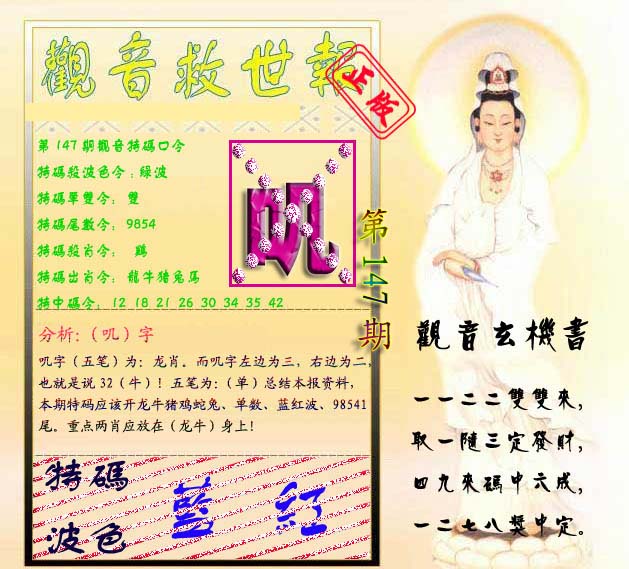 觀音救世報
正版
第147期觀音特碼口令
特碼殺波色令:綠波
特碼單雙令: 雙
特碼尾數令: 9854
特碼殺肖令: 鷄
特碼出肖令: 龍牛猪兔馬
特中碼令: 12 18 21 26 30 34 35 42
叽
第147期
分析:（叽）字
叽字（五笔）为：龙肖。而叽字左边为三，右边为二，
也就是说 32（牛）！五笔为：（单）总结本报资料，
本期特码应该开龙牛猪鸡蛇兔、单数、蓝红波、98541
尾。重点两肖应放在（龙牛）身上!
特碼
波色
藍 紅
觀音玄機書
一一二二雙雙來，
取一隨三定發財，
四九來碼中六成，
一二七八獎中定。